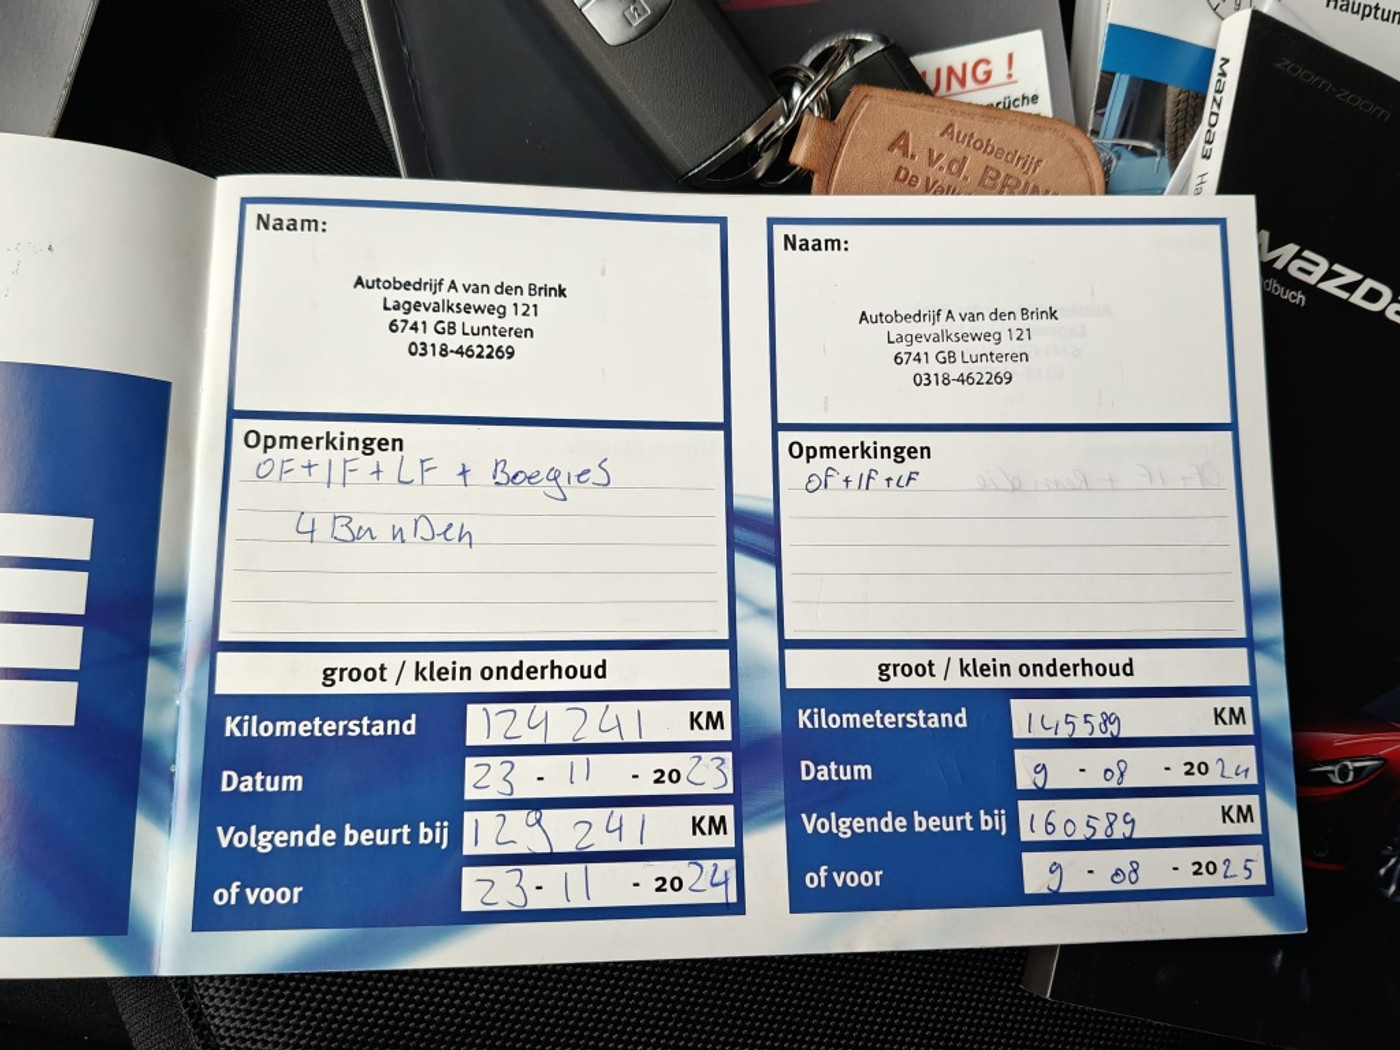 UNG !
rüche
Hauptun
zoom-zoom
Mazda3 Ha
Mazda
dbuch
Autobedrijf
A. v.d. BRIN
De Valk
Naam:
Autobedrijf A van den Brink
Lagevalkseweg 121
6741 GB Lunteren
0318-462269
Opmerkingen
OF+IF+LF + Boegies
4 BanDen
groot / klein onderhoud
Kilometerstand 124241 KM
Datum 23 - 11 - 2023
Volgende beurt bij 129241 KM
of voor 23 - 11 - 2024
Naam:
Autobedrijf A van den Brink
Lagevalkseweg 121
6741 GB Lunteren
0318-462269
Opmerkingen
OF+IF+LF
groot / klein onderhoud
Kilometerstand 145589 KM
Datum 9 - 08 - 2024
Volgende beurt bij 160589 KM
of voor 9 - 08 - 2025